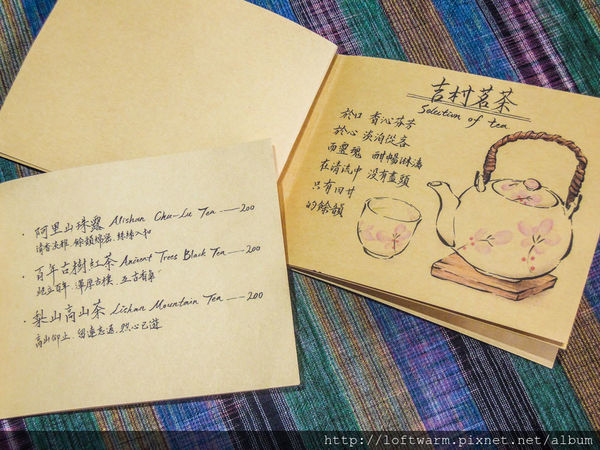 吉村茗茶
Selection of tea
於口 香沁芬芳
於心 淡泊從容
而靈魂 酣暢淋漓
在清流中 沒有盡頭
只有回甘
的餘韻
· 阿里山珠露 Alishan Chu-Lu Tea — 200
清香淡雅.餘韻綿密.絲絲入扣
· 百年古樹紅茶 Ancient Trees Black Tea — 200
屹立百年.渾厚古樸.亙古有氣
· 梨山高山茶 Lishan Mountain Tea — 200
高山仰止.留連忘返.然心已遠
http://loftwarm.pixnet.net/album